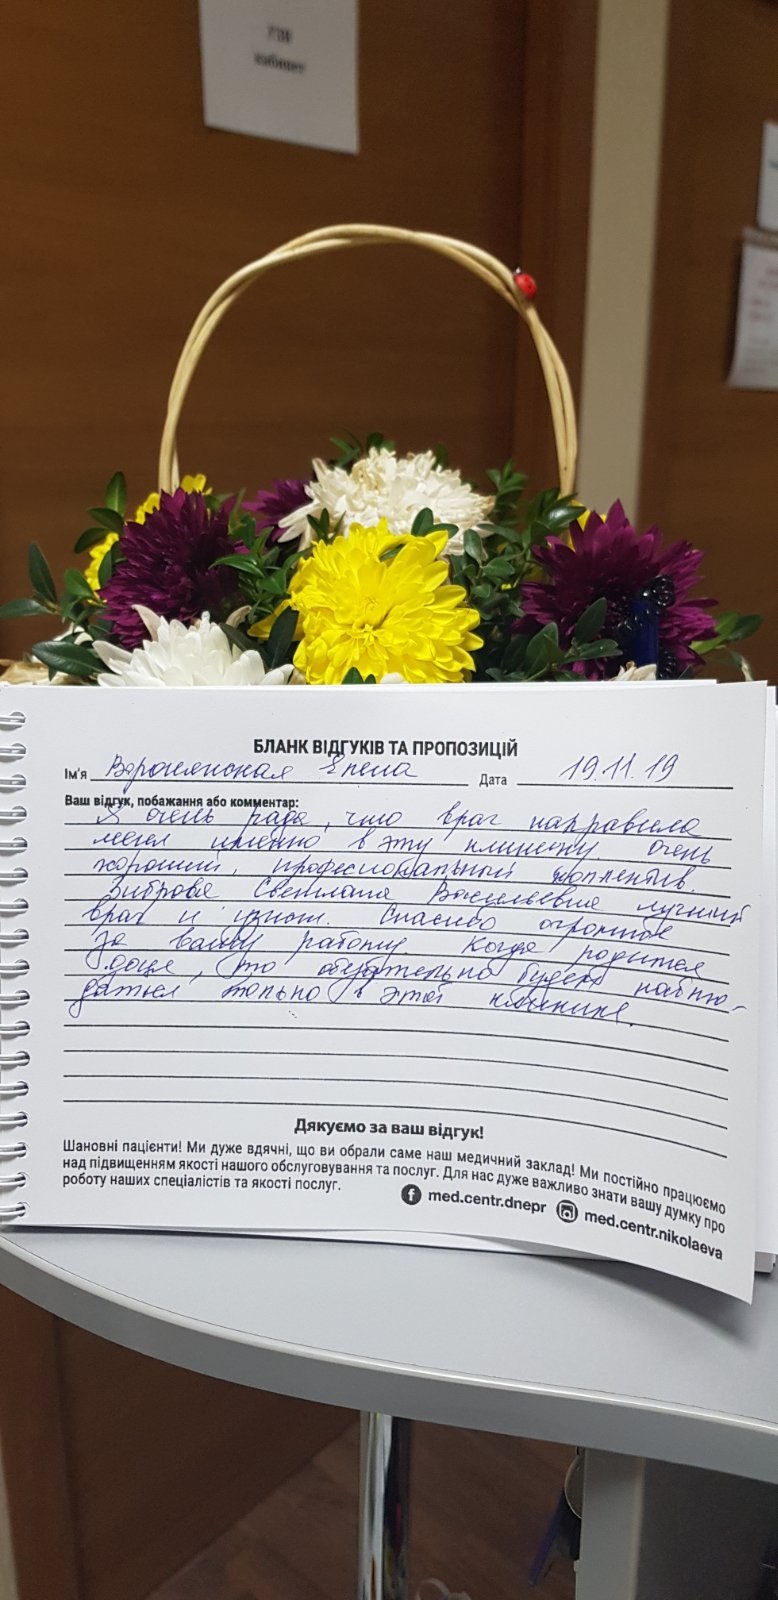 738
кабинет
БЛАНК ВІДГУКІВ ТА ПРОПОЗИЦІЙ
Ім'я Елена Дата 19.11.19
Ваш відгук, побажання або комментар:
Я очень рада, что врач направила
меня именно в эту клинику. Очень
хороший, професиональный коллектив.
Зиброва Светлана Васильевна лучший
врач и узист. Спасибо огромное
за вашу работу. Когда родится
доця, то обязательно будем наблю-
даться только в этой клинике.
Дякуємо за ваш відгук!
Шановні пацієнти! Ми дуже вдячні, що ви обрали саме наш медичний заклад! Ми постійно працюємо
над підвищенням якості нашого обслуговування та послуг. Для нас дуже важливо знати вашу думку про
роботу наших спеціалістів та якості послуг.
med.centr.dnepr med.centr.nikolaeva